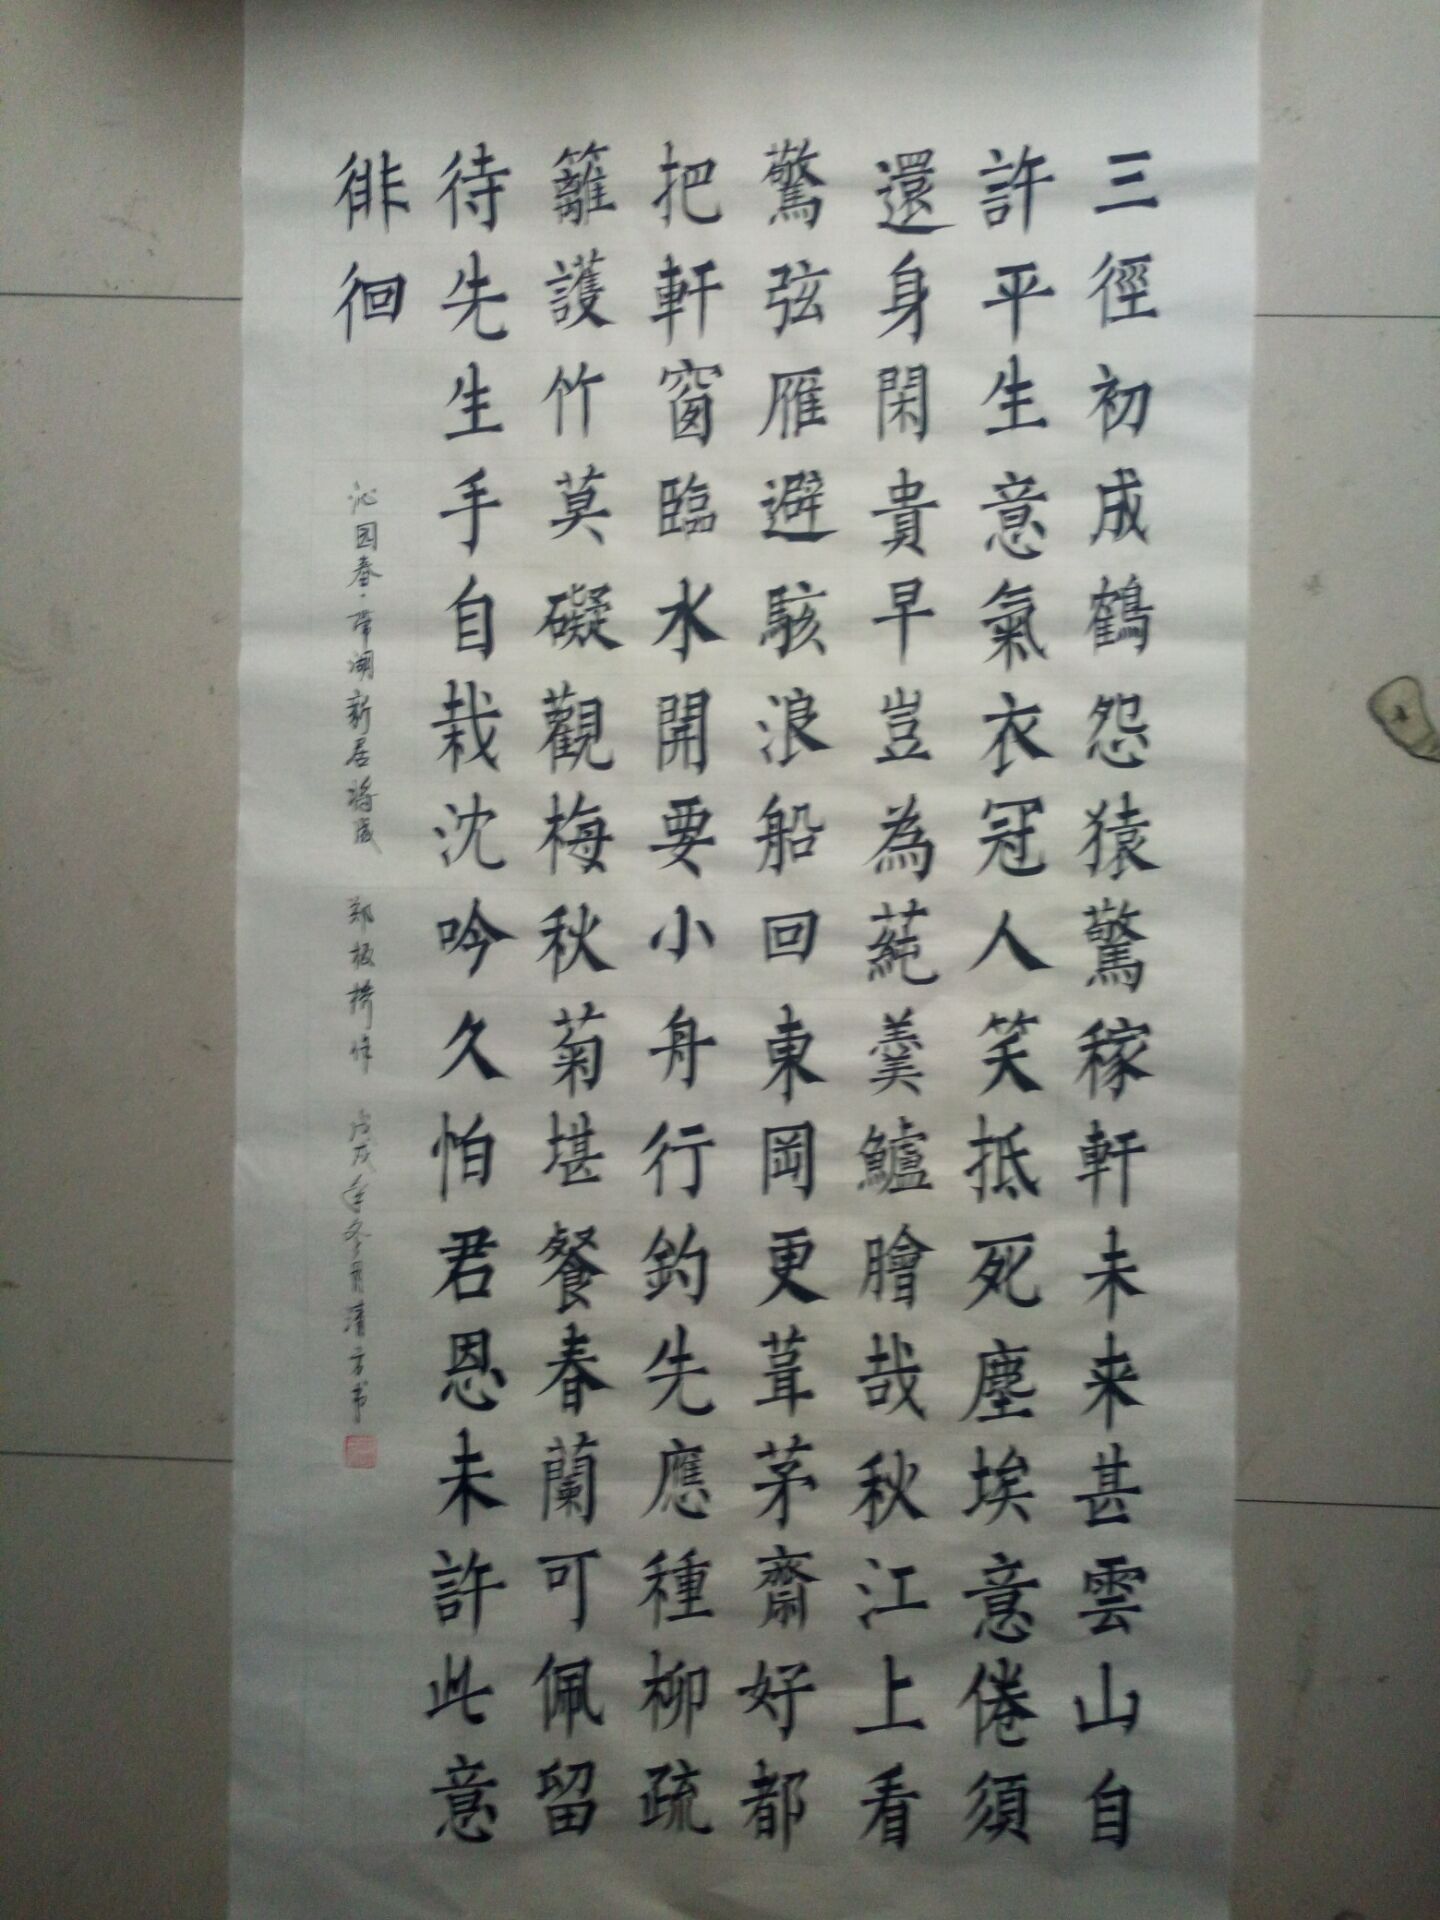 三徑初成鶴怨猿驚稼軒未来甚雲山自
許平生意氣衣冠人笑抵死塵埃意倦須
還身閑貴早豈為蒓羹鱸膾哉秋江上看
驚弦雁避駭浪船回東岡更葺茅齋好都
把軒窗臨水開要小舟行釣先應種柳疏
籬護竹莫礙觀梅秋菊堪餐春蘭可佩留
待先生手自栽沈吟久怕君恩未許此意
徘徊
沁园春·带湖新居将成 郑板桥作 戊戌年冬月清方书